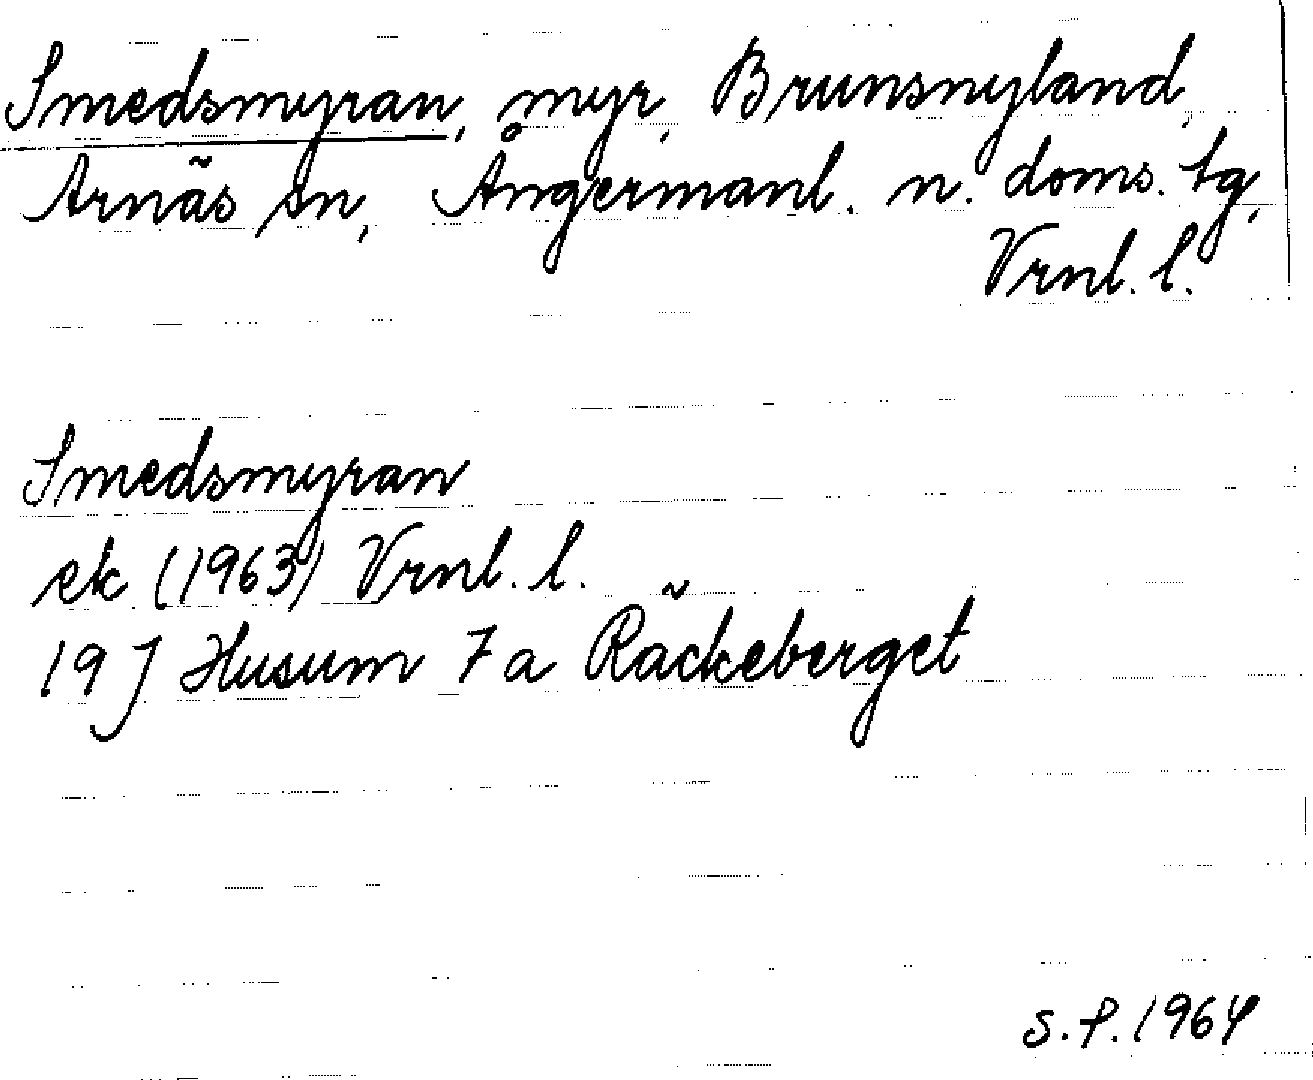 Smedsmyran, myr, Brunsnyland,
Arnäs sn, Ångermanl. n. doms. tg,
Vrnl. l.
Smedsmyran
ek (1963) Vrnl. l.
19 J Husum 7 a Räckeberget
S.P. 1964